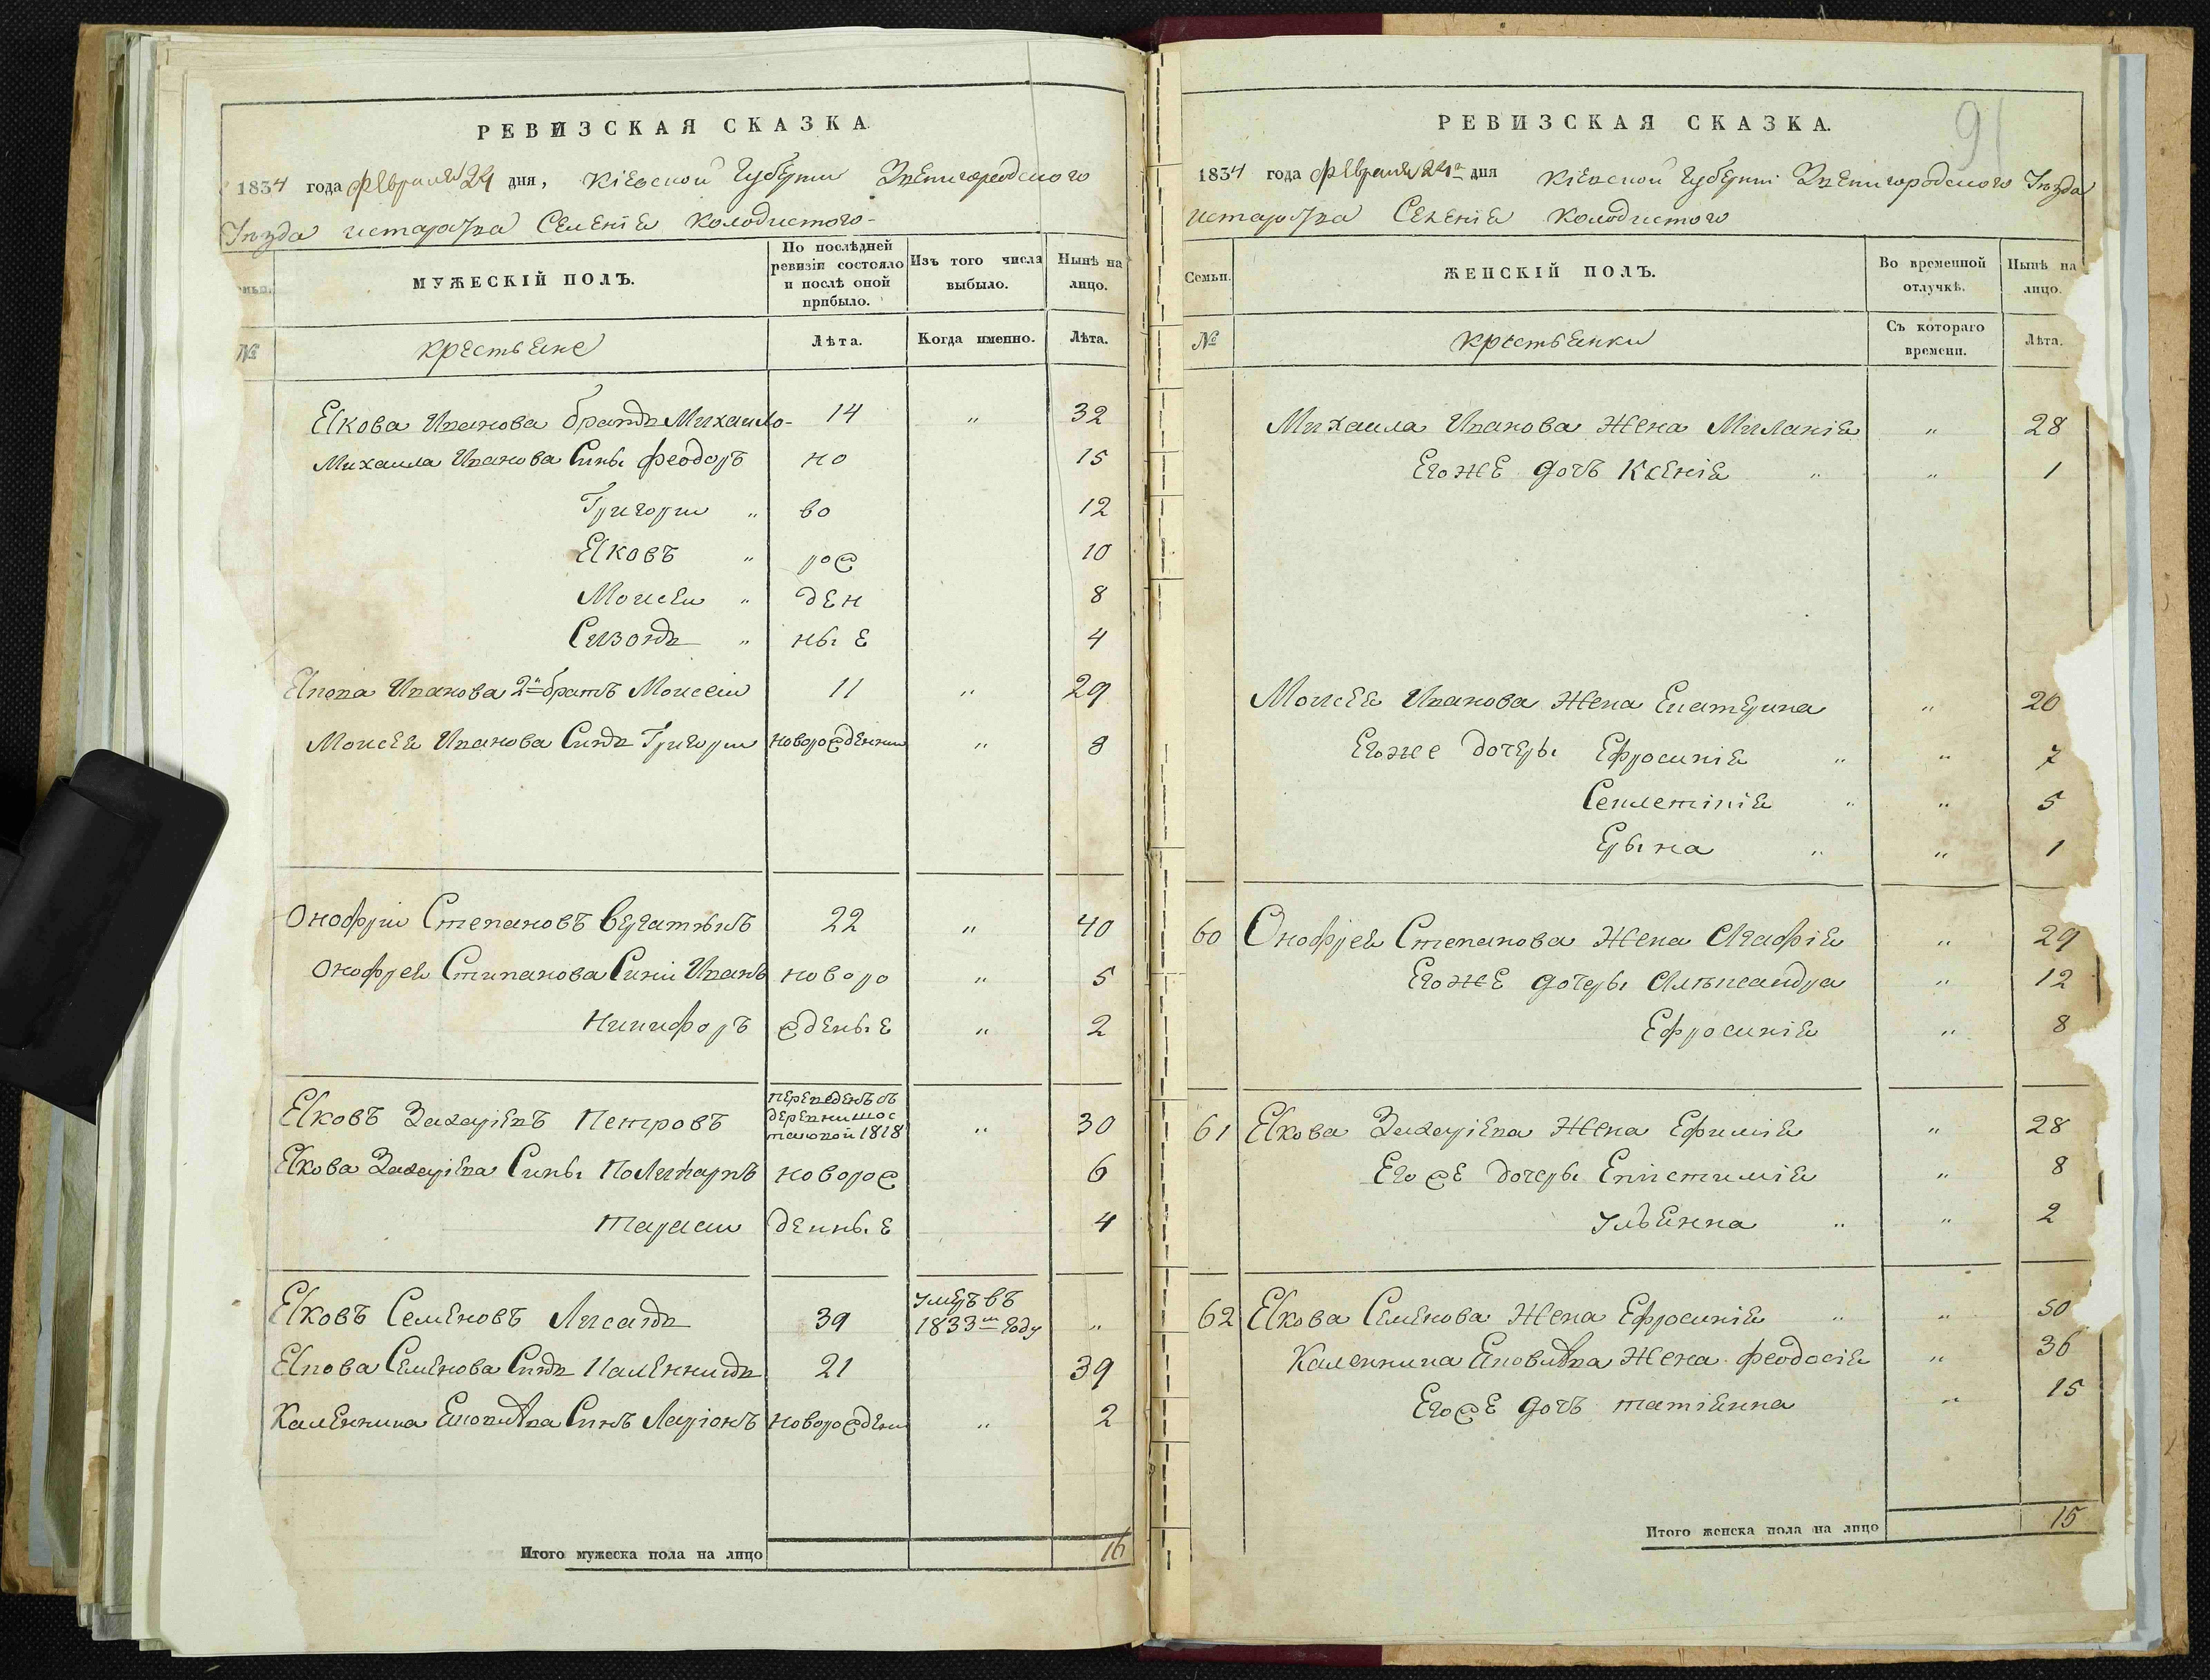 РЕВИЗСКАЯ СКАЗКА
1834 года февраля 24 дня, Кіевской Губерніи Звенигородского
Уезда Селенія Колодистого
Семьи.
МУЖЕСКІЙ ПОЛЪ.
По послѣдней ревизіи состояло и послѣ оной прибыло.
Изъ того числа выбыло.
Нынѣ на лицо.
№
крестьяне
Лѣта.
Когда именно.
Лѣта.
Якова Иванова братъ Михаило 14 " 32
Михаила Иванова Сины Феодоръ но 15
Григори " во 12
Яковъ " рож 10
Моисеи " ден 8
Сизонъ " ны е 4
Якова Иванова 2й братъ Моисеи 11 " 29
Моисея Иванова Синъ Григори новорожденни " 8
Онофрiи Степановъ 22 " 40
Онофрея Стипанова Сини Иванъ ново ро " 5
Никифоръ жденые " 2
Яковъ Захаріевъ Петровъ переведенъ съ деревни 1818 " 30
Якова Захаріева Сины Поликарпъ новорож 6
Тараси денные 4
Яковъ Семеновъ Лисакъ 39 умеръ въ 1833м году "
Якова Семенова Синъ Каленникъ 21 39
Каленника Синъ Ларіонъ новорожден " 2
Итого мужеска пола на лицо 16
91
РЕВИЗСКАЯ СКАЗКА.
1834 года февраля 24го дня Кіевской Губерніи Звенигородского Уезда
Селенія Колодистого
Семьи.
ЖЕНСКІЙ ПОЛЪ.
Во временной отлучкѣ.
Нынѣ на лицо.
№
крестьянки
Съ котораго времени.
Лѣта.
Михаила Иванова Жена Миланія " 28
Егоже дочь Ксенія " " 1
Моисея Иванова Жена Екатерина " 26
Егоже дочеры Ефросинія " " 7
" " 5
Ерына " " 1
60 Онофрея Степанова Жена Агафія " 29
Егоже дочеры Алѣксандра " 12
Ефросинія " 8
61 Якова Захаріева Жена Ефимія " 28
Егоже дочеры Епистимія " 8
Ульянна " " 2
62 Якова Семенова Жена Ефросинія " " 50
Каленника Жена Феодосія " 36
Егоже дочь татіянна " 15
Итого женска пола на лицо 15